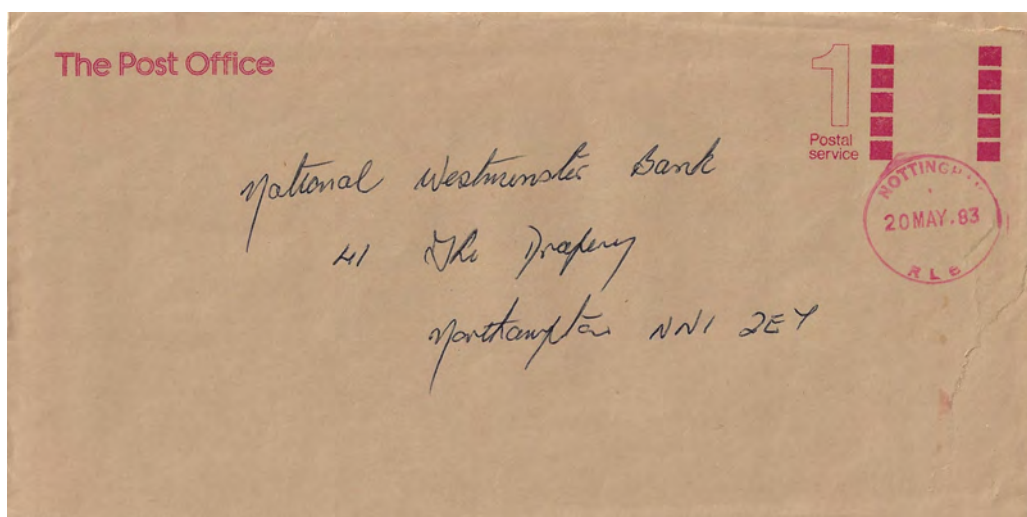 The Post Office
1
Postal
service
NOTTINGHAM
20 MAY. 83
R L B
National Westminster Bank
41 The Drapery
Northampton NN1 2EY